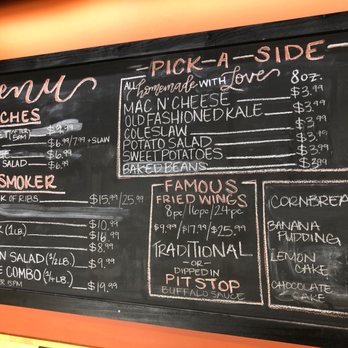 enu
CHES
$9.99
$6.99/7.99 +SLAW
$6.99
SALAD $6.99
SMOKER
K OF RIBS $15.99/25.99
(1LB.) $10.99
$16.99
$8.99
N SALAD (1/2LB.) $9.99
E COMBO (3/4LB.)
ER 5PM $19.99
PICK-A-SIDE
ALL homemade WITH Love 8oz.
MAC N' CHEESE $3.99
OLD FASHIONED KALE $3.99
COLESLAW $3.99
POTATO SALAD $3.99
SWEET POTATOES $3.99
BAKED BEANS $3.99
FAMOUS
FRIED WINGS
8pc/16pc/24pc
$9.99/$17.99/$25.99
TRADITIONAL
-OR-
DIPPED IN
PITSTOP
BUFFALO SAUCE
CORNBREA
BANANA
PUDDING
LEMON
CAKE
CHOCOLATE
CAKE